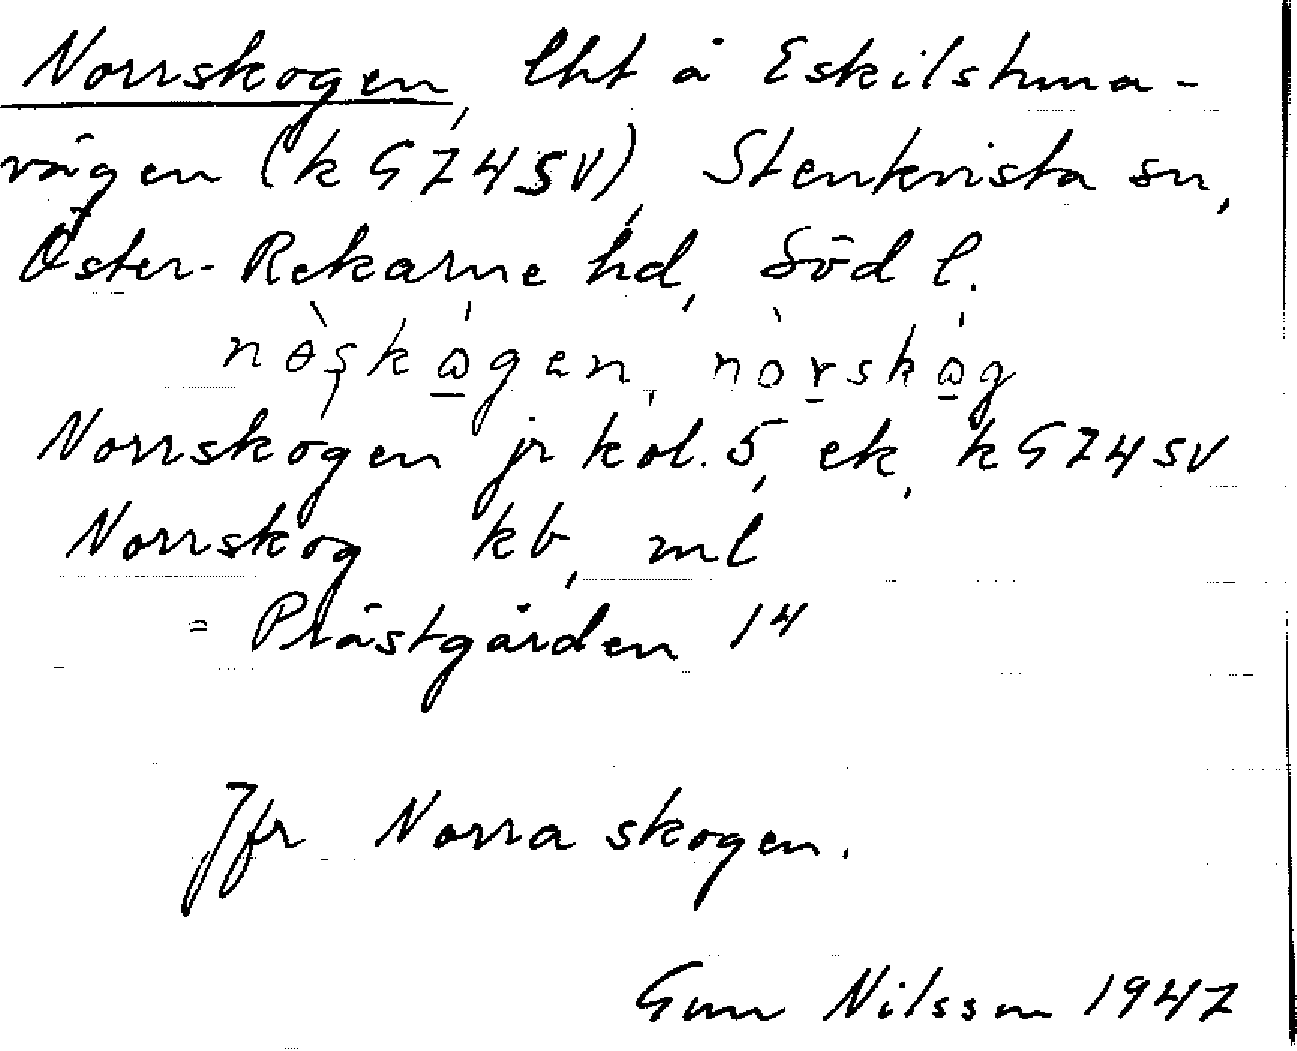 Norrskogen, lht å Eskilstuna-
vägen (k G74SV), Stenkvista sn,
Öster-Rekarne hd, Söd l.
Norrskogen jr kol. 5, ek, k G74SV
Norrskog kb, ml
= Prästgården 14
Jfr Norra skogen.
Gun Nilsson 1947